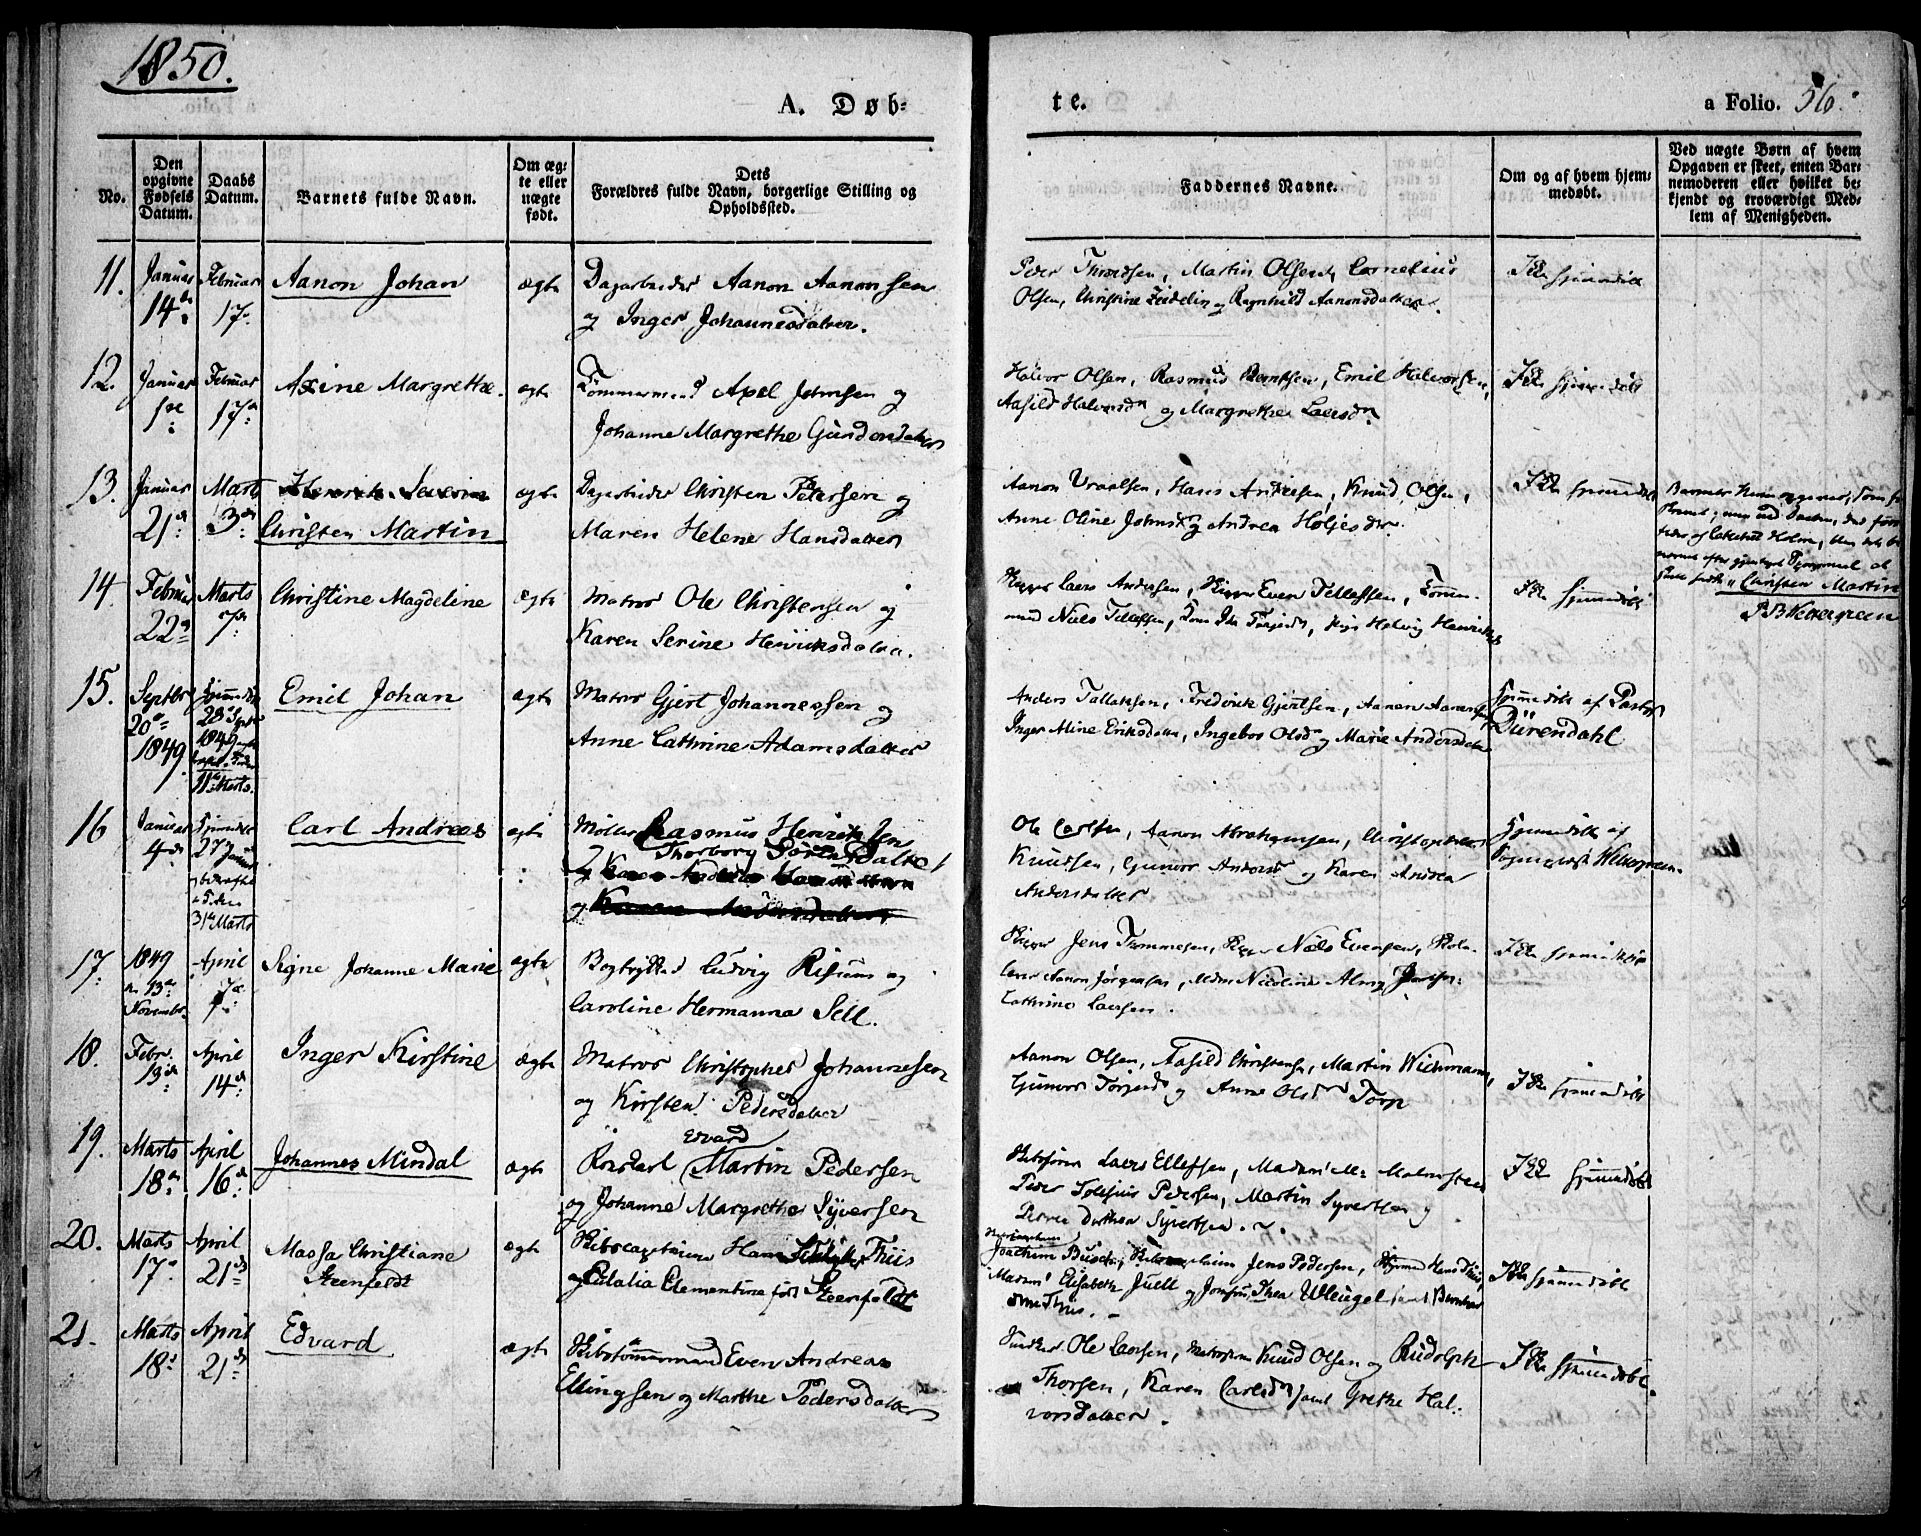 1850.
A. Døb-
te.
a Folio. 56.
No.
Den
opgivne
Fødsels
Datum.
Daabs
Datum.
Barnets fulde Navn.
Om æg-
te eller
uægte
født.
Dets
Forældres fulde Navn, borgerlige Stilling og
Opholdssted.
Faddernes Navne.
Om og af hvem hjem-
medøbt.
Ved uægte Børn af hvem
Opgaven er skeet, enten Bar-
nemoderen eller hvilket be-
kjendt og troværdigt Med-
lem af Menigheden.
11.
Januar
14de
Februar
17.
Aanon Johan
ægte
Dagarbeider Aanon Aanonsen
og Inger Johannesdatter.
Peder Thordsen, Martin Olsen, Cornelius
Olsen, Christine Zeidelin og Ragnhild Aanonsdatter.
Ikke hjemmedøbt
12.
Januar
1ste
Februar
17de
Axine Margrethe.
ægte
Tømmermand Axel Johnsen og
Johanne Margrethe Gundersdatter
Halvor Olsen, Rasmus Berntsen, Emil Halvorsen,
Aasild Halvorsdr og Margrethe Larsdr.
Ikke hjemmedøbt
13.
Januar
21de
Marts
3die
Henrik Severin
Christen Martin
ægte
Dagarbeider Christen Petersen og
Maren Helene Hansdatter
Aanon Vraalsen, Hans Andersen, Knud Olsen,
Anne Oline Johnsdr og Andrea Holjesdr.
Ikke hjemmedøbt
Carsten Martin
14.
Februar
22de
Marts
7de
Christine Magdeline
ægte
Matros Ole Christensen og
Karen Serine Henricksdatter.
Skipper Lars Andersen, Skipper Even Tellefsen, Tømmer-
mand Niels Tellefsen, Henriksdr
Ikke hjemmedøbt
15.
Septbr
20de
1849
28de Septbr
1849
11te Marts.
Emil Johan
ægte
Matros Gjert Johannessen og
Anne Cathrine Adamsdatter
Anders Tallaksen, Fredrik Gjertsen, Aanon Aanonsen
Inger Mine Eriksdatter, Ingebor Olsdr og Marie Andersdatter
Hjemmedøbt af Pastor
Dürendahl
16
Januar
4de
Hjemmedøbt
27 Januar
31te Marts
Carl Andreas
ægte
Møller Rasmus Henriksen
Thorborg Sørensdatter
og
Ole Carlsen, Aanon Abrahamsen, Christopher
Knudsen, Gunvor Andersdr og Karen Andrea
Andersdatter
Hjemmedøbt af
Sogneprest Wettergreen.
17.
1849
13de
Novembr.
April
7de
Signe Johanne Marie
ægte
Bogtrykker Ludvig Risum og
Caroline Hermanna Sell.
Skipper Jens Tommesen, Skipper Niels Evensen,
Aanon Jørgensen, Mdm Nicoline
Cathrine Larsen.
Ikke hjemmedøbt
18.
Febr.
13de
April
14de
Inger Kirstine
ægte
Matros Christopher Johannesen
og Kirsten Pedersdatter
Aanon Olsen, Aasild Christensen, Martin Wichmann,
Gunvor Torjersdr og Anne Olsdr Torp
Ikke hjemmedøbt
19.
Marts
18de
April
16de
Johannes Mindal
ægte
Edvard
Martin Pedersen
og Johanne Margrethe Syversen
Skibsfører Lars Ellefsen, Madam M. Malmsteen
Peder Pedersen, Martin Syvertsen og
Dorthea Syvertsen.
Ikke hjemmedøbt
20.
Marts
17de
April
21de
Massa Christiane
Steenfeldt
ægte
Skibscapitain Hans Thiis
og Edalia Clementine født Steenfeldt
Joachim Busch, Skibscaptain Jens Pedersen, Hans Thiis,
Madam Elisabeth Juell og Jomfru Thea Wleugel samt Bernhard
Thiis.
Ikke hjemmedøbt
21.
Marts
18de
April
21de
Edvard
ægte
Skibstømmermand Even Andreas
Ellingsen og Marthe Pedersdatter
Ole Larsen, Matros Knud Olsen og Rudolph
Thorsen, Karen Carlsdr samt Grethe Hal-
vorsdatter.
Ikke hjemmedøbt.